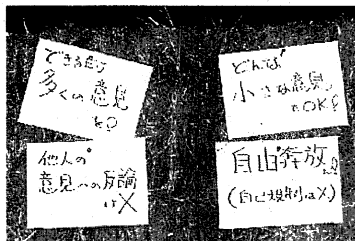 できるだけ
多くの意見
を!
どんな
小さな意見
もOK!
他人の
意見への反論
は×
自由奔放に!
(自己規制は×)